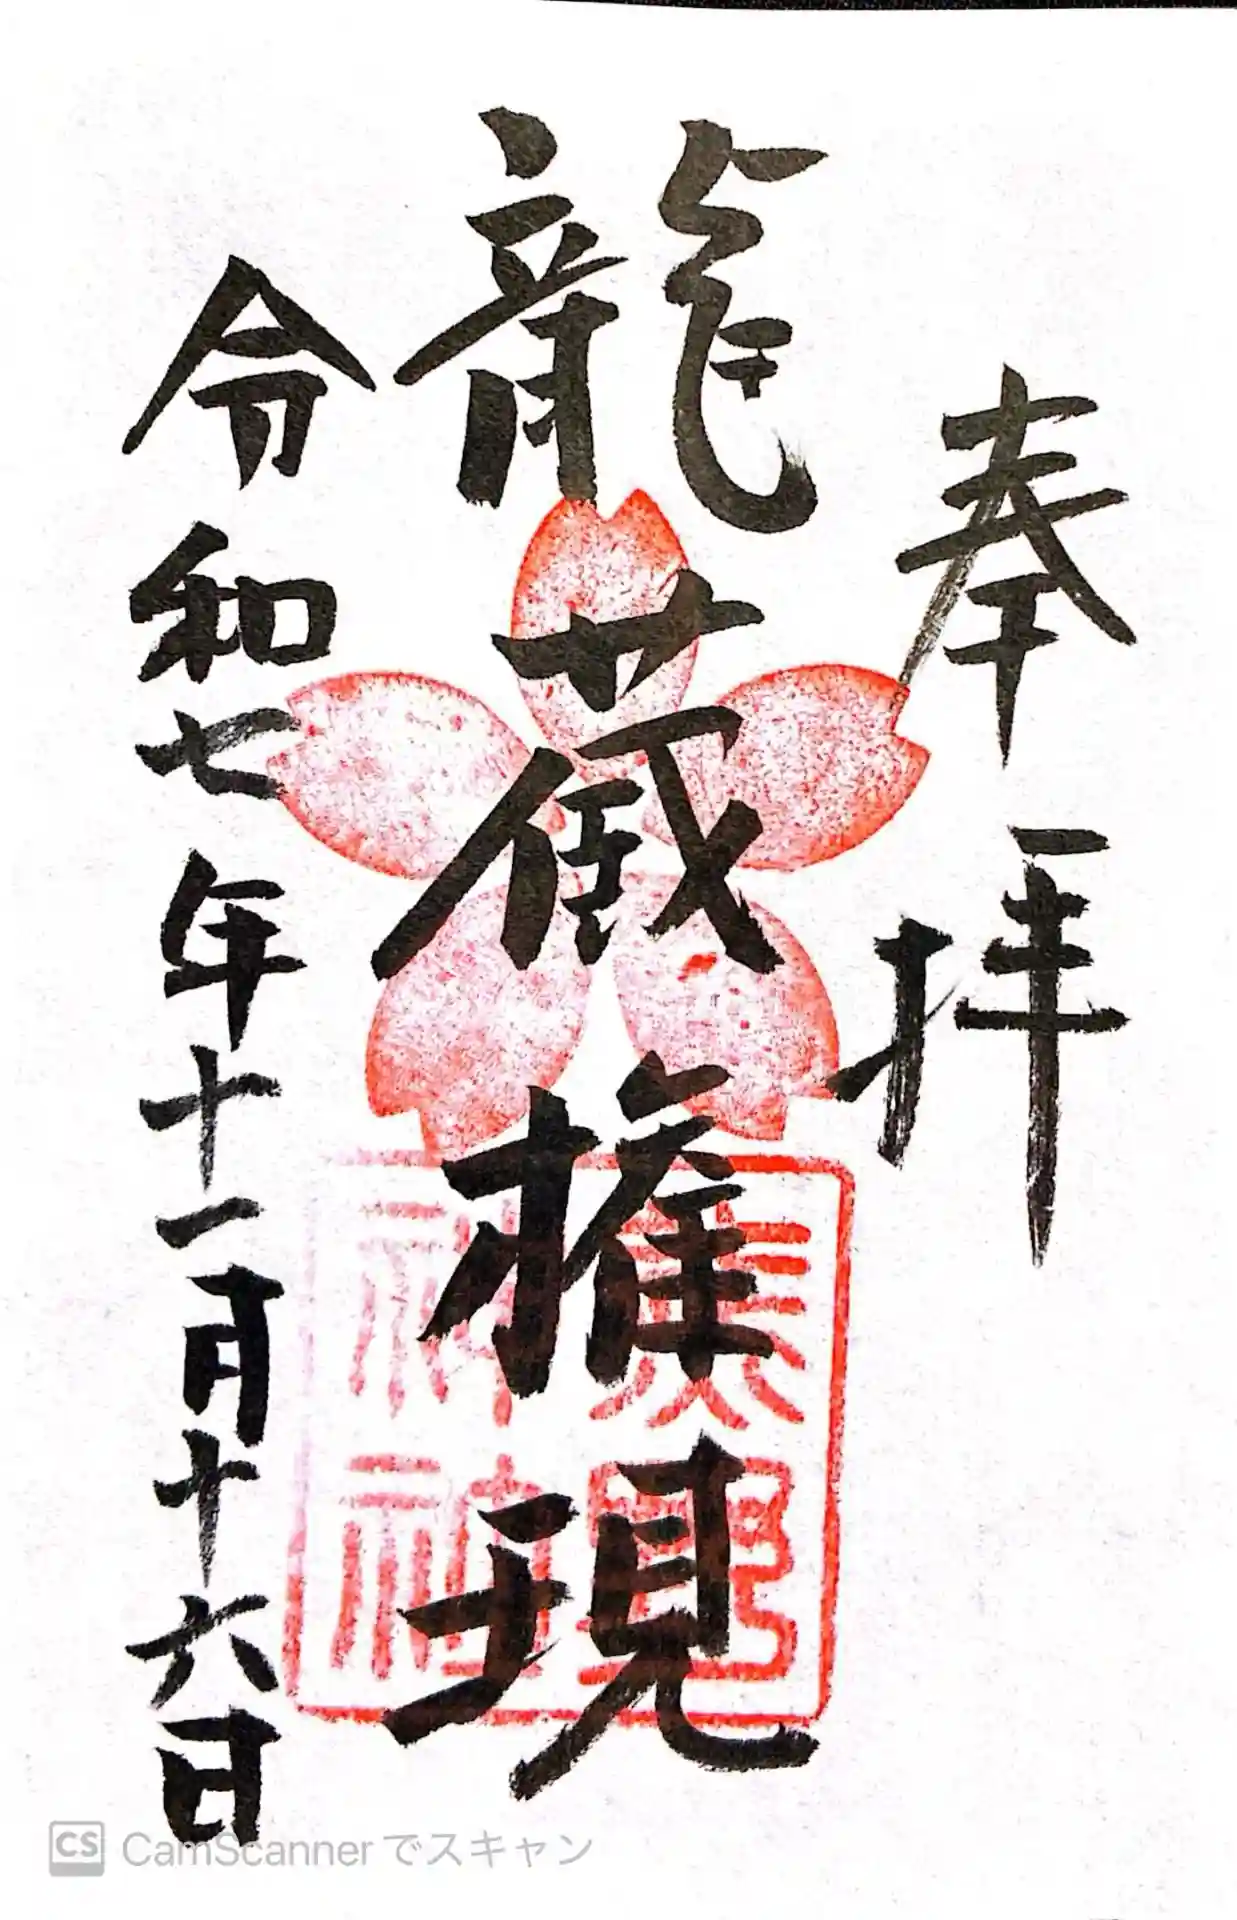 奉拝
龍蔵権現
令和七年十一月十六日
CS CamScannerでスキャン